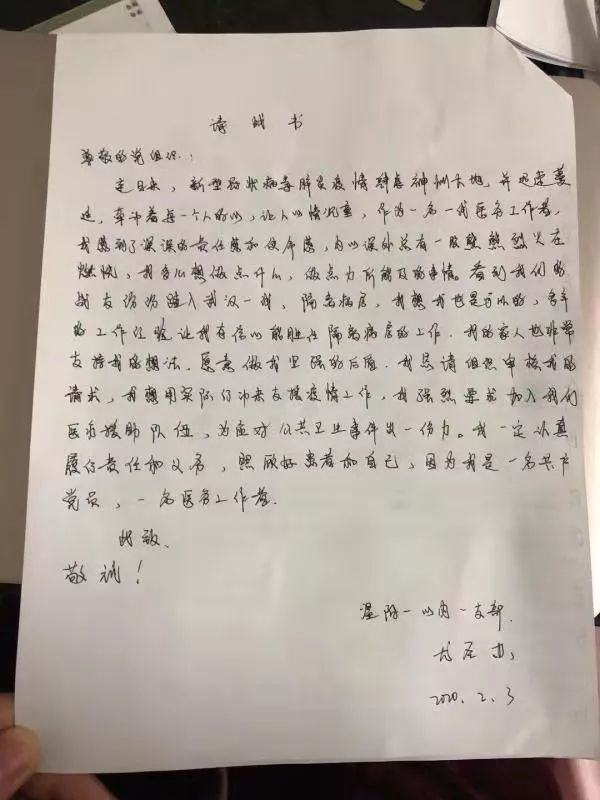 请战书
尊敬的党组织：
近日来，新型冠状病毒肺炎疫情肆虐神州大地，并迅速蔓
延，牵动着每一个人的心，让人心情沉重，作为一名一线医务工作者，
我感到了深深的责任感和使命感，内心深处总有一股熊熊烈火在
燃烧，我多么想做点什么，做点力所能及的事情。看到我们的
战友纷纷踏入武汉一线、隔离病房，我想我也是可以的，多年
的工作经验让我有信心能胜任隔离病房的工作。我的家人也非常
支持我的想法，愿意做我坚强的后盾。我恳请组织审核我的
请求，我想用实际行动来支援疫情工作，我强烈要求加入我们
医疗援助队伍，为应对公共卫生事件出一份力。我一定认真
履行责任和义务，照顾好患者和自己，因为我是一名共产
党员，一名医务工作者。
此致、
敬礼！
心内一支部
2020.2.3